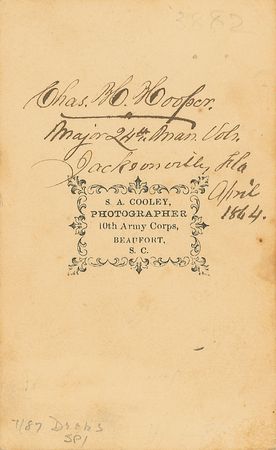 2882
Chas. B. Hooper.
Major 24th. Mass. Vols.
Jacksonville, Fla
April
1864.
S. A. COOLEY,
PHOTOGRAPHER
10th Army Corps,
BEAUFORT,
S. C.
7/87 Drebs
SP1